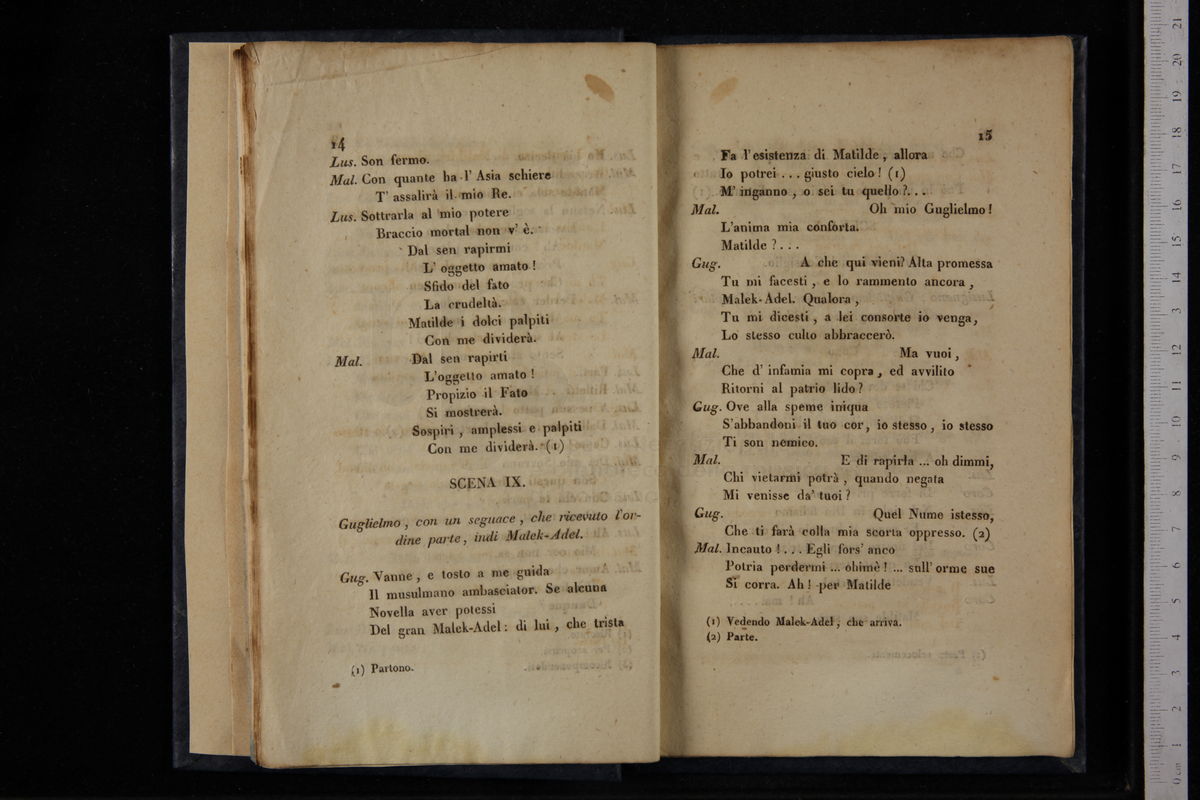 14
Lus. Son fermo.
Mal. Con quante ha l' Asia schiere
T' assalirà il mio Re.
Lus. Sottrarla al mio potere
Braccio mortal non v' è.
Dal sen rapirmi
L' oggetto amato !
Sfido del fato
La crudeltà.
Matilde i dolci palpiti
Con me dividerà.
Mal. Dal sen rapirti
L'oggetto amato !
Propizio il Fato
Si mostrerà.
Sospiri , amplessi e palpiti
Con me dividerà. (1)
SCENA IX.
Guglielmo , con un seguace , che ricevuto l'or-
dine parte, indi Malek-Adel.
Gug. Vanne , e tosto a me guida
Il musulmano ambasciator. Se alcuna
Novella aver potessi
Del gran Malek-Adel : di lui , che trista
(1) Partono.
15
Fa l'esistenza di Matilde , allora
Io potrei . . . giusto cielo ! (1)
M' inganno , o sei tu quello ?. . .
Mal. Oh mio Guglielmo !
L'anima mia conforta.
Matilde ? . . .
Gug. A che qui vieni? Alta promessa
Tu mi facesti , e lo rammento ancora ,
Malek-Adel. Qualora ,
Tu mi dicesti , a lei consorte io venga,
Lo stesso culto abbraccerò.
Mal. Ma vuoi ,
Che d' infamia mi copra , ed avvilito
Ritorni al patrio lido ?
Gug. Ove alla speme iniqua
S'abbandoni il tuo cor, io stesso , io stesso
Ti son nemico.
Mal. E di rapirla ... oh dimmi,
Chi vietarmi potrà , quando negata
Mi venisse da' tuoi ?
Gug. Quel Nume istesso,
Che ti farà colla mia scorta oppresso. (2)
Mal. Incauto ! . . . Egli fors' anco
Potria perdermi ... ohimè ! ... sull' orme sue
Si corra. Ah ! per Matilde
(1) Vedendo Malek-Adel , che arriva.
(2) Parte.
0 cm 1 2 3 4 5 6 7 8 9 10 11 12 13 14 15 16 17 18 19 20 21